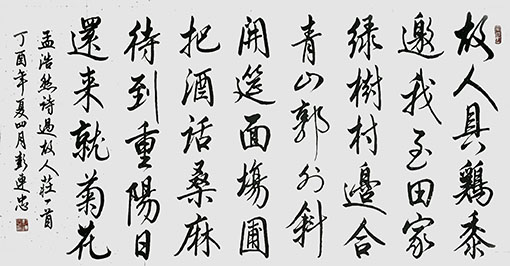 故人具鷄黍
邀我至田家
绿樹村邉合
青山郭外斜
開筵面塲圃
把酒話桑麻
待到重陽日
還来就菊花
孟浩然詩過故人莊一首
丁酉年夏四月彭連忠